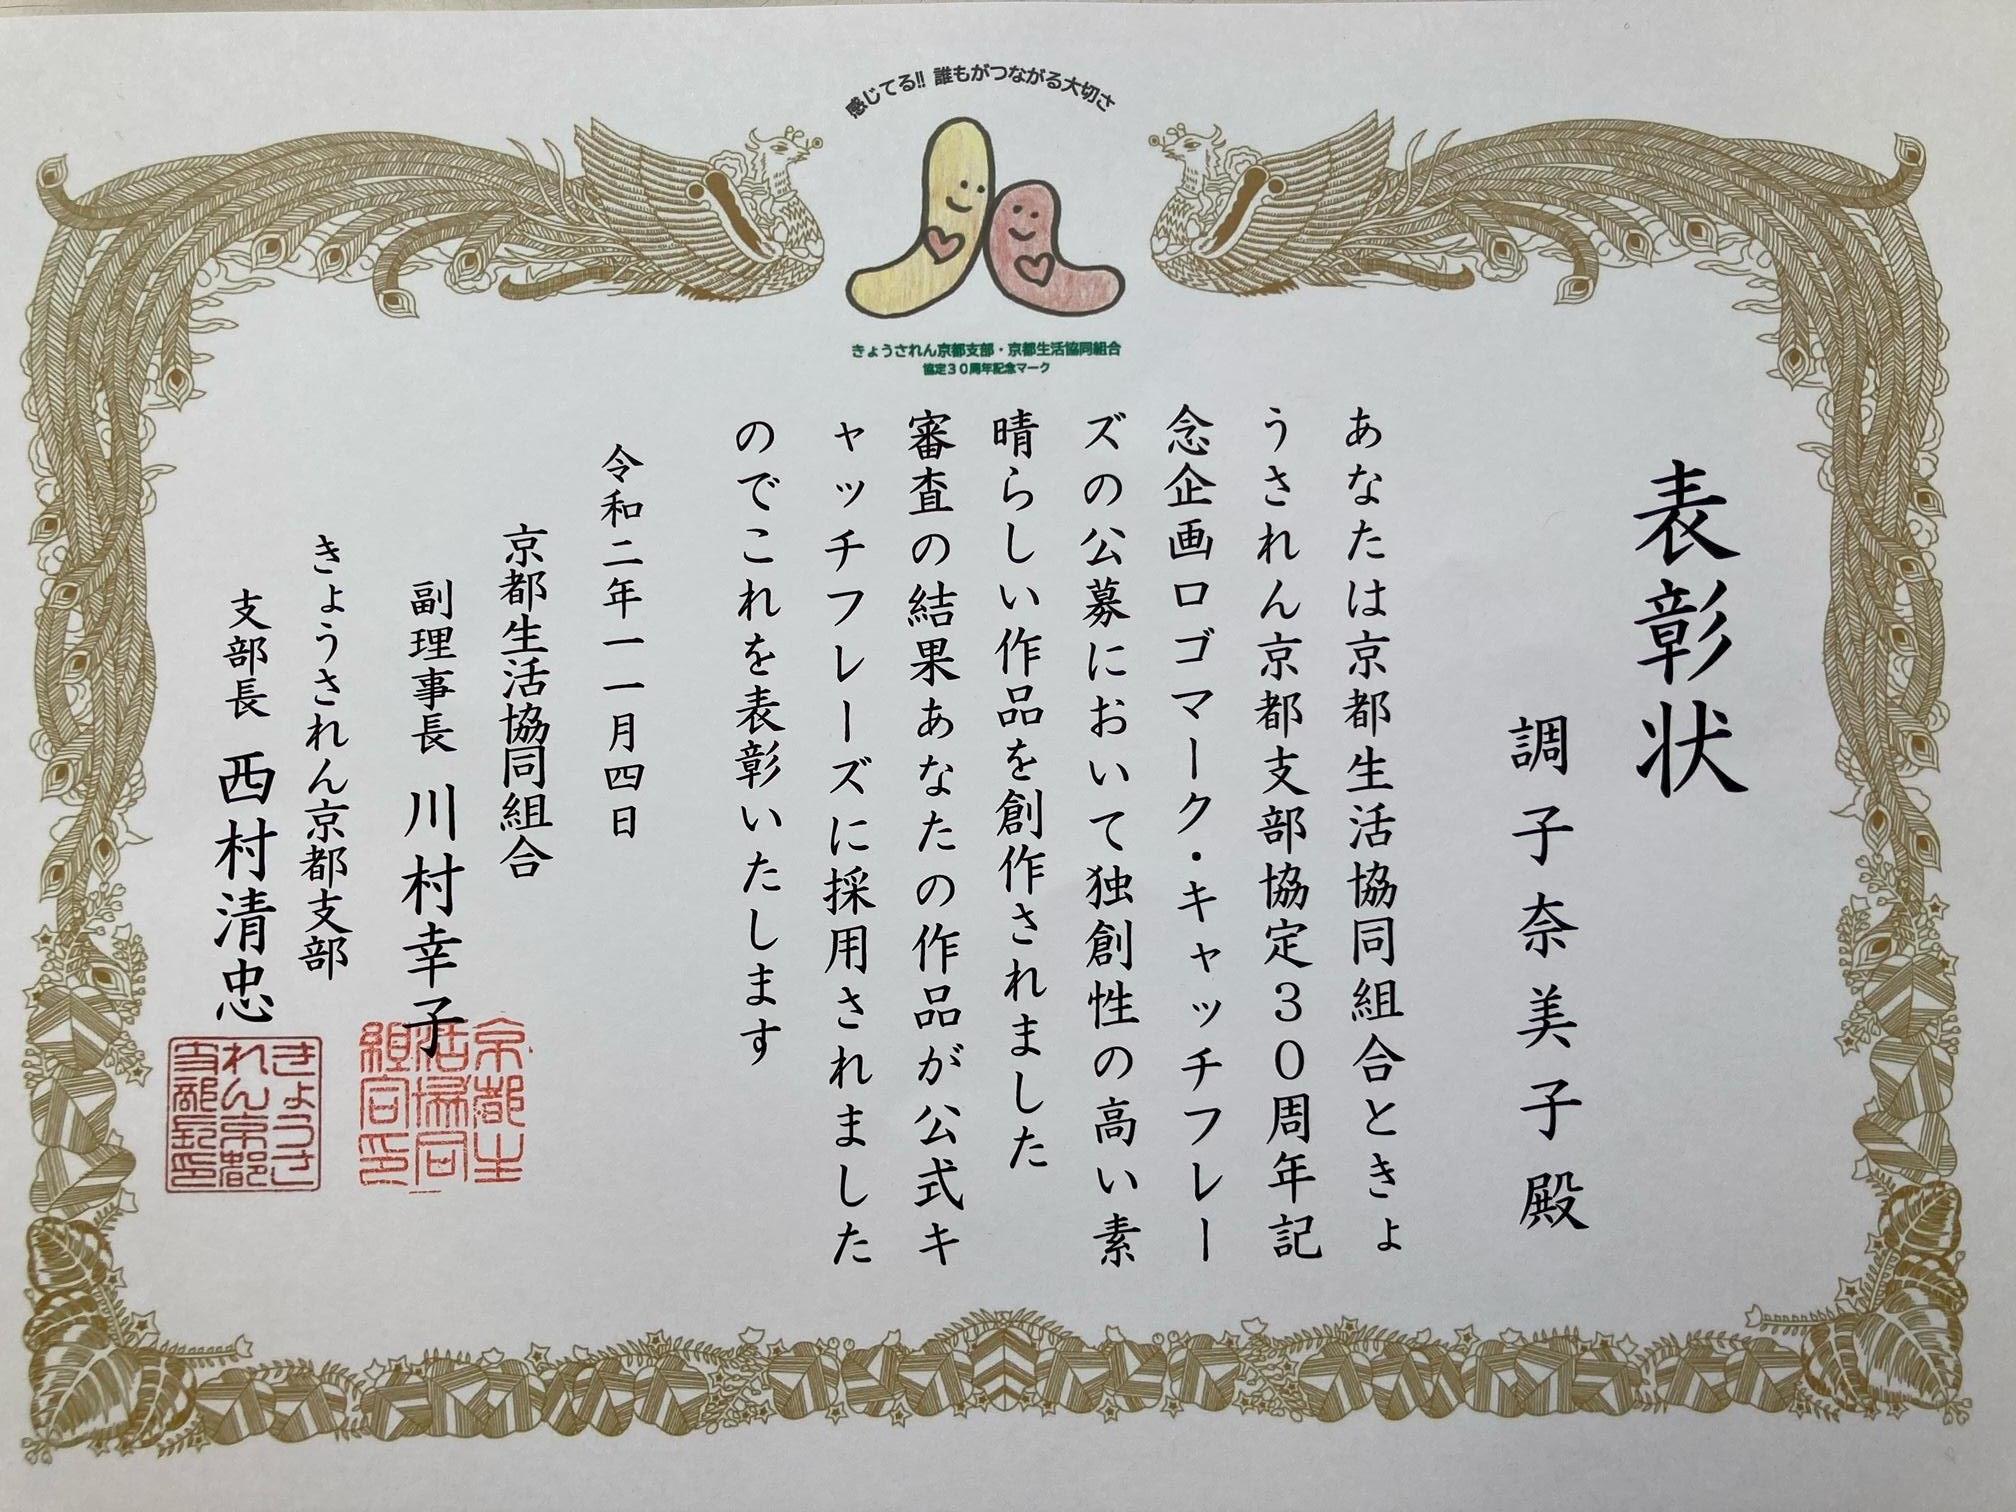 感じてる!! 誰もがつながる大切さ
きょうされん京都支部・京都生活協同組合
協定30周年記念マーク
表彰状
調子奈美子殿
あなたは京都生活協同組合ときょ
うされん京都支部協定30周年記
念企画ロゴマーク・キャッチフレー
ズの公募において独創性の高い素
晴らしい作品を創作されました
審査の結果あなたの作品が公式キ
ャッチフレーズに採用されました
のでこれを表彰いたします
令和二年一一月四日
京都生活協同組合
副理事長 川村幸子
京都生
活協同
組合印
きょうされん京都支部
支部長 西村清忠
きょうさ
れん京都
支部長印